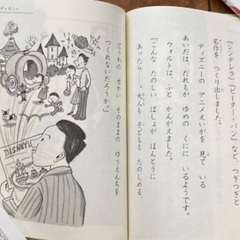 『シンデレラ』『ピーター・パン』など、つぎつぎと
名作を つくり出しました。
ディズニーの アニメえいがを 見て いる
あいだは、だれもが ゆめの くにに いるようです。
ウォルトは、ふと かんがえました。
「こんな たのしい ばしょが ほんとうに
あったら、大人も 子どもも たのしめる。
どうわの せかい そのままの ゆうえんちを
つくれないだろうか。」